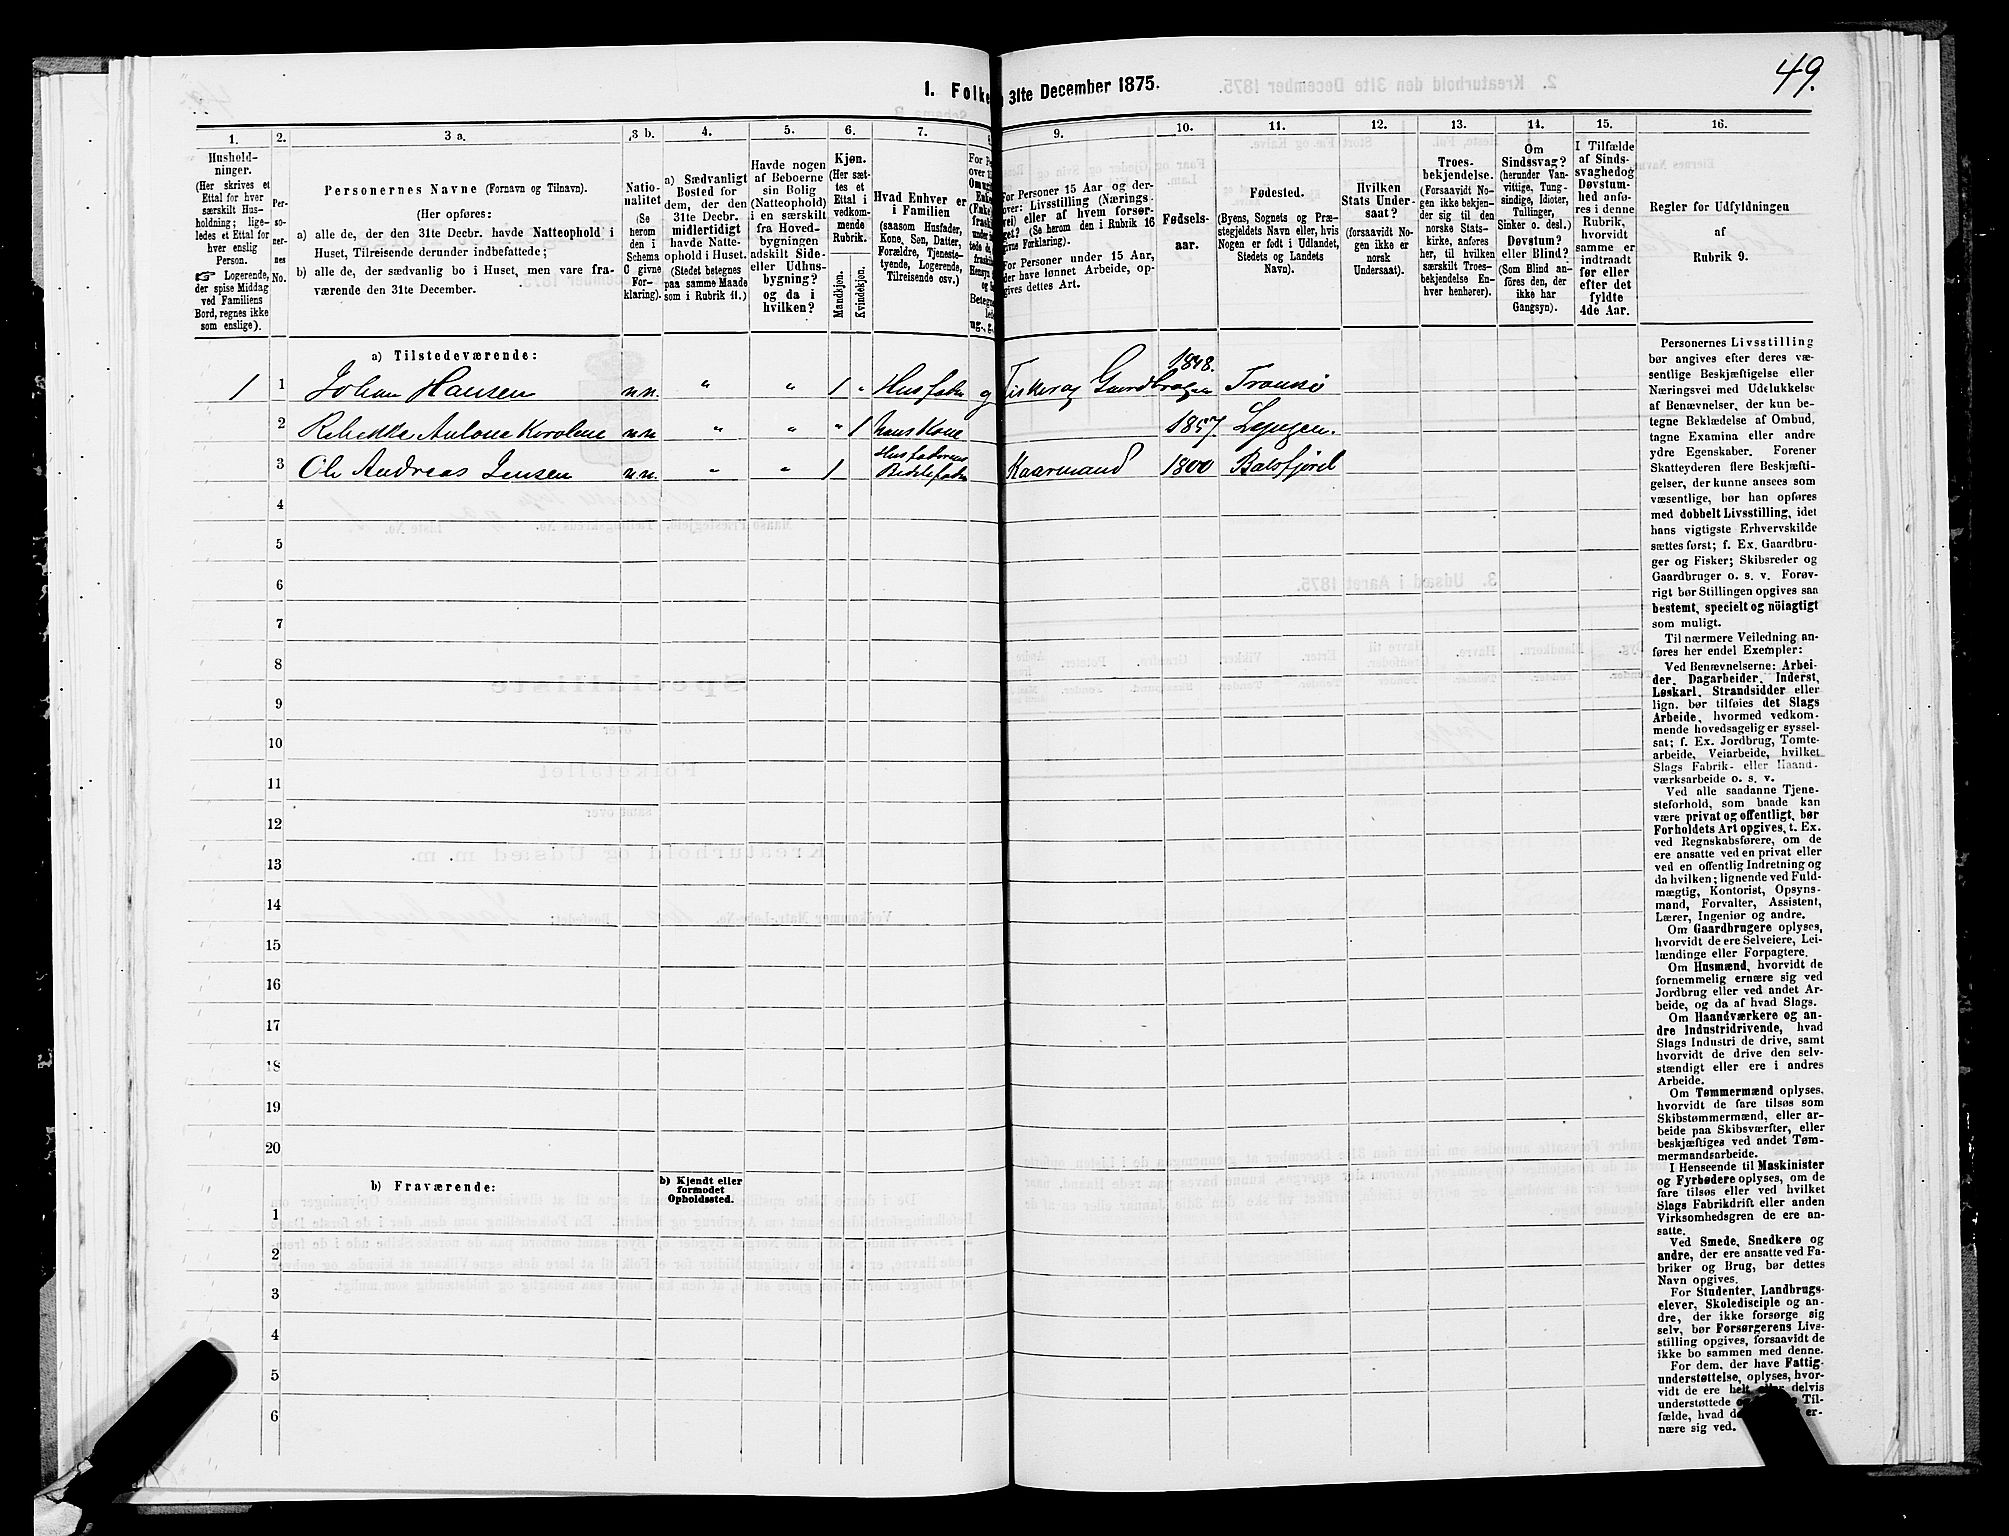 49.
1. Folke
n 31te December 1875.
1.
2.
3 a.
3 b.
4.
5.
6.
7.
8
9.
10.
11.
12.
13.
14.
15.
16.
Hushold-
ninger.
(Her skrives et
Ettal for hver
særskilt Hus-
holdning; lige-
ledes et Ettal for
hver enslig
Person.
☞ Logerende,
der spise Middag
ved Familiens
Bord, regnes ikke
som enslige).
Per-
so-
ner-
nes
No.
Personernes Navne (Fornavn og Tilnavn).
(Her opføres:
a) alle de, der den 31te Decbr. havde Natteophold i
Huset, Tilreisende derunder indbefattede;
b) alle de, der sædvanlig bo i Huset, men vare fra-
værende den 31te December.
Natio-
nalitet
(Se
herom
den i
Schema
C givne
For-
klaring).
a) Sædvanligt
Bosted for
dem, der den
31te Decbr.
midlertidigt
havde Natte-
ophold i Huset.
(Stedet betegnes
paa samme Maade
som i Rubrik 11.)
Havde nogen
af Beboerne
sin Bolig
(Natteophold)
i en særskilt
fra Hoved-
bygningen
adskilt Side-
eller Udhus-
bygning?
og da i
hvilken?
Kjøn.
(Her sæt-
tes et
Ettal i
vedkom-
mende
Rubrik.
Mandkjøn.
Kvindekjøn.
Hvad Enhver er
i Familien
(saasom Husfader,
Kone, Søn, Datter,
Forældre, Tjeneste-
tyende, Logerende,
Tilreisende osv.)
For Personer 15 Aar og der-
over: Livsstilling (Nærings-
vei) eller af hvem forsør-
get? (Se herom den i Rubrik 16
givne Forklaring).
For Personer under 15 Aar,
der have lønnet Arbeide, op-
gives dettes Art.
Fødsels-
aar.
Fødested.
(Byens, Sognets og Præ-
stegjeldets Navn eller, hvis
Nogen er født i Udlandet,
Stedets og Landets
Navn).
Hvilken
Stats Under-
saat?
(forsaavidt No-
gen ikke er
norsk
Undersaat).
Troes-
bekjendelse.
(Forsaavidt No-
gen ikke bekjen-
der sig til den
norske Stats-
kirke, anføres
her, til hvilken
særskilt Troes-
bekjendelse En-
hver henhører).
Om
Sindssvag?
(herunder Van-
vittige, Tung-
sindige, Idioter,
Tullinger,
Sinker o. desl.)
Døvstum?
eller Blind?
(Som Blind an-
føres den, der
ikke har
Gangsyn).
I Tilfælde
af Sinds-
svaghedog
Døvstum-
hed anfø-
res i denne
Rubrik,
hvorvidt
samme er
indtraadt
før eller
efter det
fyldte
4de Aar.
Regler for Udfyldningen
af
Rubrik 9.
a) Tilstedeværende:
1 1 Johan Hansen n.n. " " 1 " Husfader g Fisker og Gaardbruger 1848. Tromsø
2 Rebekka Antona Karoline n.n " " " 1 hans Kone 1857. Lyngen.
3 Ole Andreas Jensen n.n. " " 1 Husfaderens Kaarmand 1800 Balsfjord
4
5
6
7
8
9
10
11
12
13
14
15
16
17
18
19
20
b) Fraværende:
b) Kjendt eller
formodet
Opholdssted.
1
2
3
4
5
6
Personernes Livsstilling
bør angives efter deres væ-
sentlige Beskjæftigelse eller
Næringsvei med Udelukkelse
af Benævnelser, der kun be-
tegne Beklædelse af Ombud,
tagne Examina eller andre
ydre Egenskaber. Forener
Skatteyderen flere Beskjæfti-
gelser, der kunne ansees som
væsentlige, bør han opføres
med dobbelt Livsstilling, idet
hans vigtigste Erhvervskilde
sættes først; f. Ex. Gaardbru-
ger og Fisker; Skibsreder og
Gaardbruger o. s. v. Forøv-
rigt bør Stillingen opgives saa
bestemt, specielt og nöiagtigt
som muligt.
Til nærmere Veiledning an-
føres her endel Exempler:
Ved Benævnelserne: Arbei-
der, Dagarbeider, Inderst,
Løskarl, Strandsidder eller
lign. bør tilføies det Slags
Arbeide, hvormed vedkom-
mende hovedsagelig er syssel-
sat; f. Ex. Jordbrug, Tomte-
arbeide, Veiarbeide, hvilket
Slags Fabrik- eller Haand-
værksarbeide o. s. v.
Ved alle saadanne Tjene-
steforhold, som baade kan
være privat og offentligt, bør
Forholdets Art opgives, t. Ex.
ved Regnskabsførere, om de
ere ansatte ved en privat eller
ved en offentlig Indretning og
da hvilken; lignende ved Fuld-
mægtig, Kontorist, Opsyns-
mand, Forvalter, Assistent,
Lærer, Ingeniør og andre.
Om Gaardbrugere oplyses,
hvorvidt de ere Selveiere, Lei-
lændinge eller Forpagtere.
Om Husmænd, hvorvidt de
fornemmelig ernære sig ved
Jordbrug eller ved andet Ar-
beide, og da af hvad Slags.
Om Haandværkere og an-
dre Industridrivende, hvad
Slags Industri de drive, samt
hvorvidt de drive den selv-
stændigt eller ere i andres
Arbeide.
Om Tømmermænd oplyses,
hvorvidt de fare tilsøs som
Skibstømmermænd, eller ar-
beide paa Skibsværfter, eller
beskjæftiges ved andet Tøm-
mermandsarbeide.
I Henseende til Maskinister
og Fyrbødere oplyses, om de
fare tilsøs eller ved hvilket
Slags Fabrikdrift eller anden
Virksomhedsgren de ere an-
satte.
Ved Smede, Snedkere og
andre, der ere ansatte ved Fa-
briker og Brug, bør dettes
Navn opgives.
For Studenter, Landbrugs-
elever, Skoledisciple og an-
dre, der ikke forsørge sig
selv, bør Forsørgerens Livs-
stilling opgives, forsaavidt de
ikke bo sammen med denne.
For dem, der have Fattig-
understøttelse, oplyses, hvor-
vidt de ere helt eller delvis
understøttede Til-
fælde, hvad er-
nære sig ved.